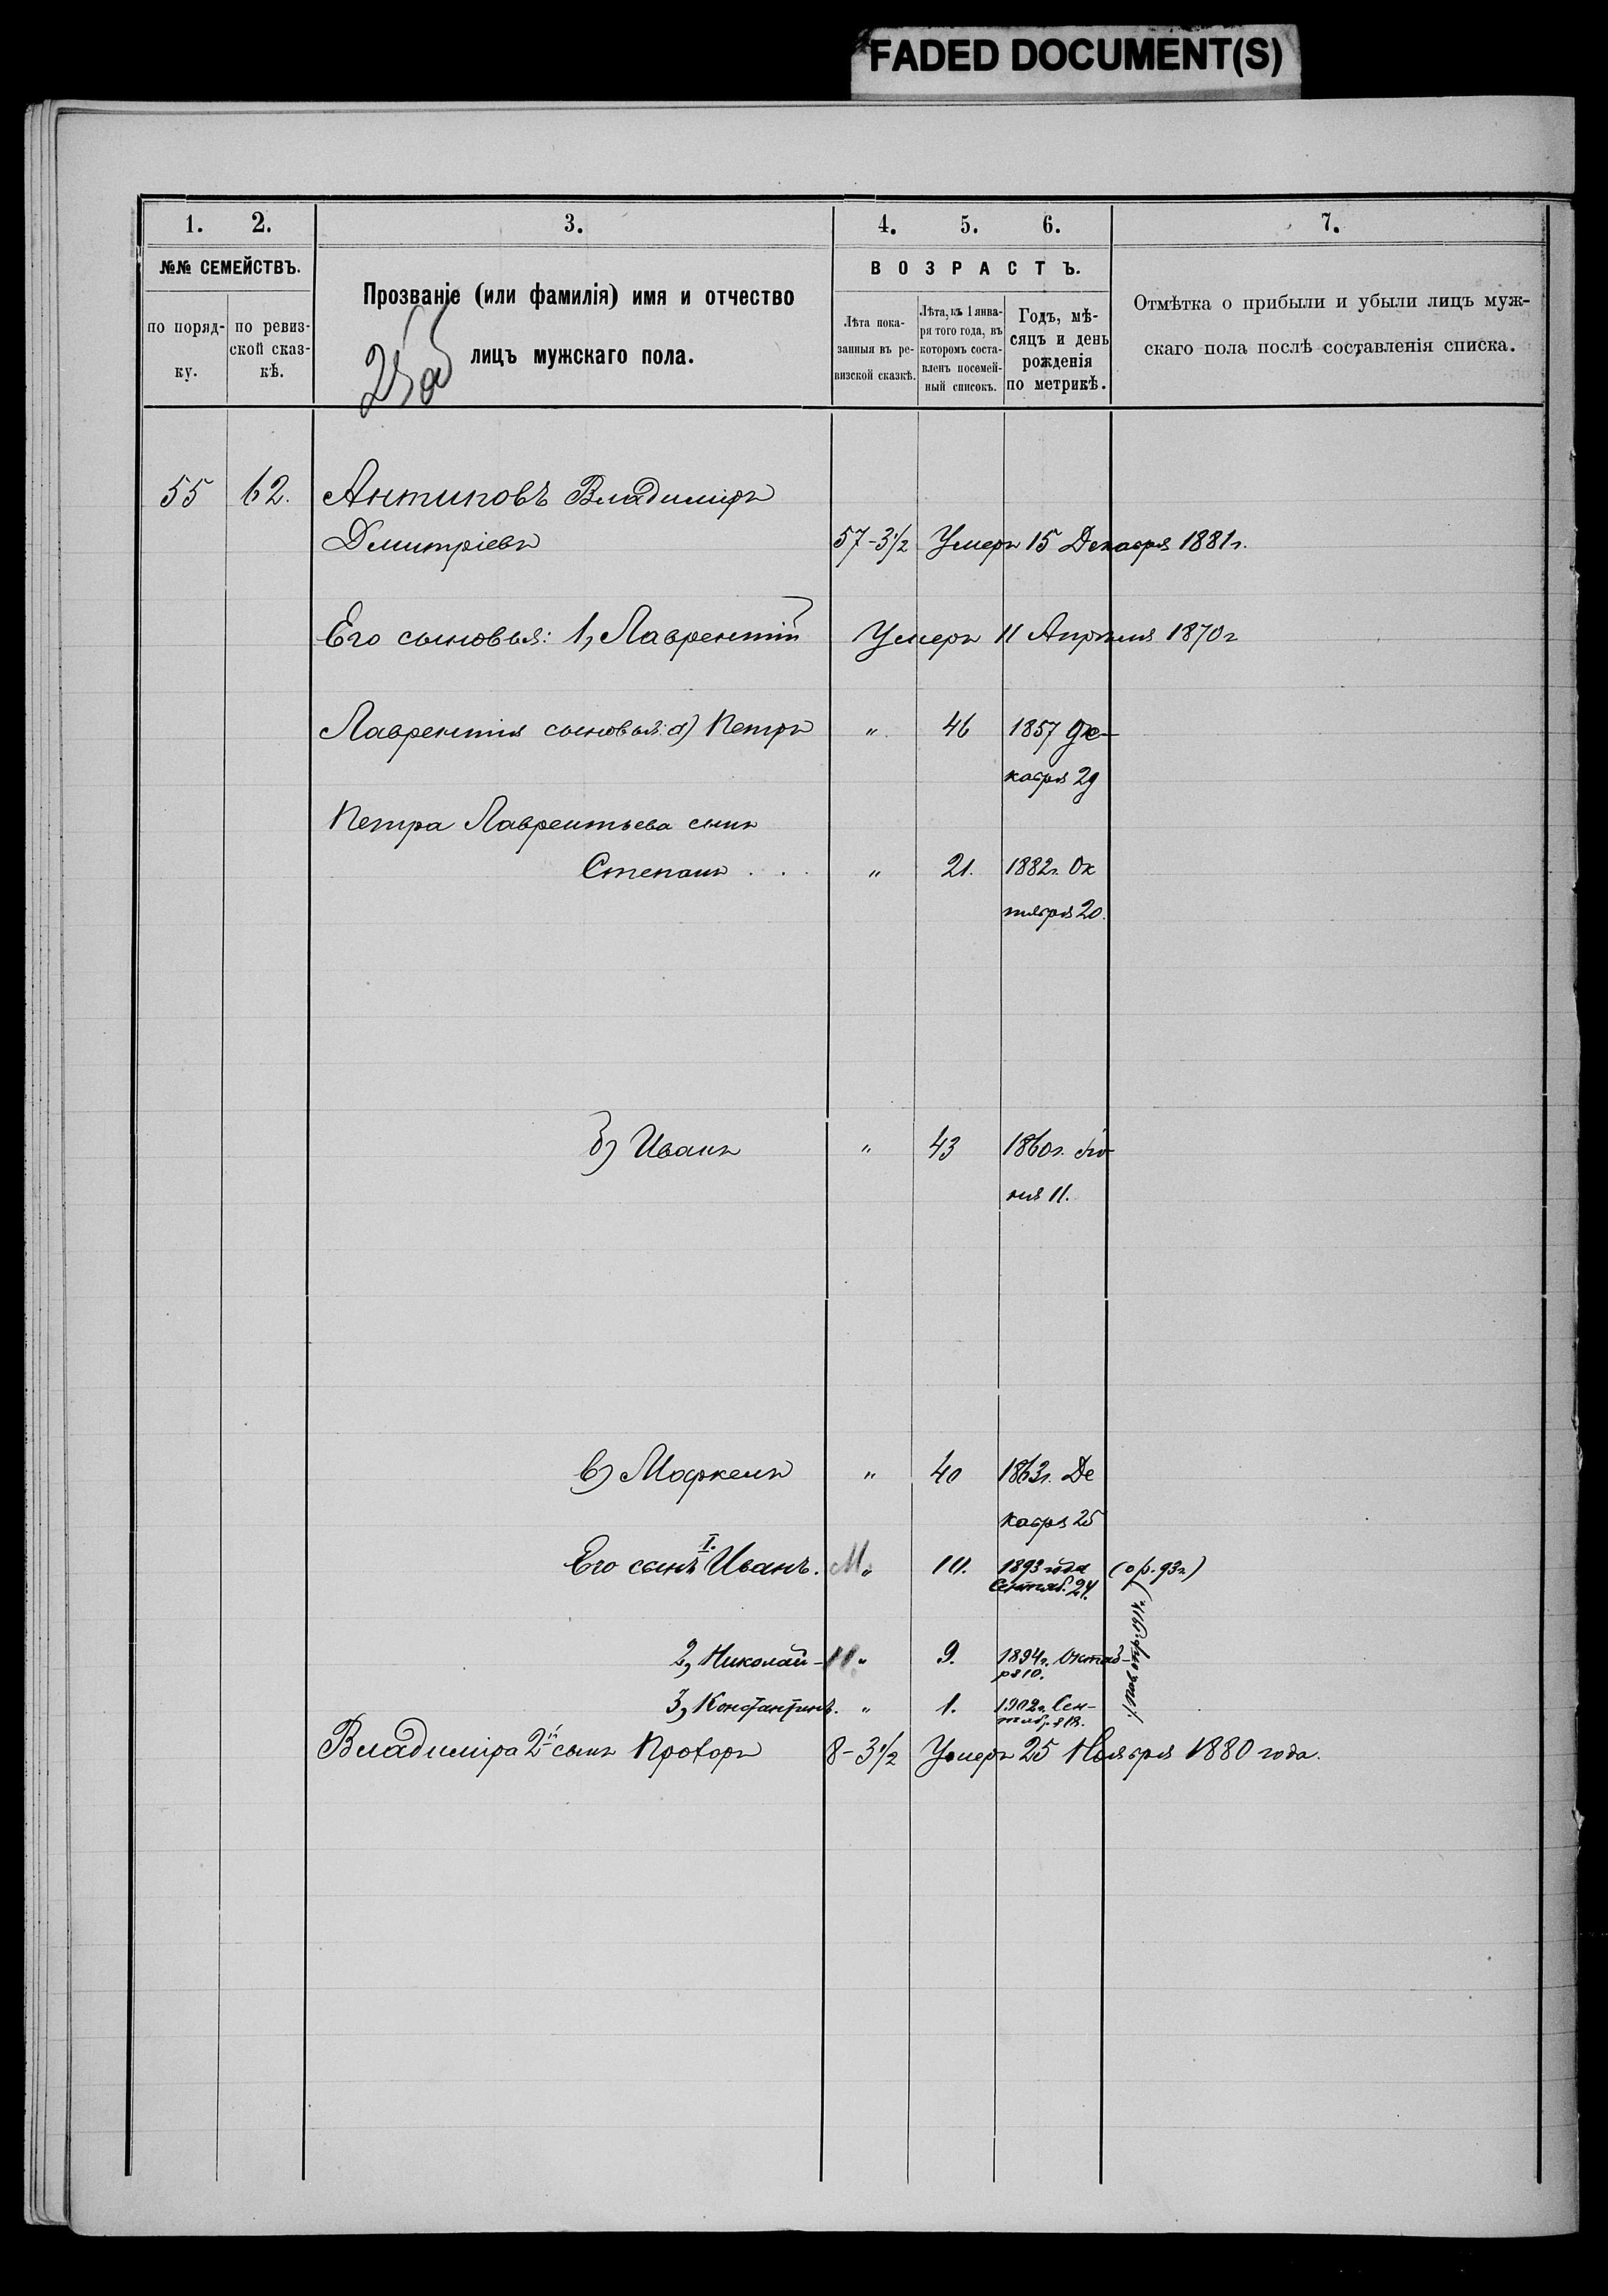 FADED DOCUMENT(S)
1. 2. 3. 4. 5. 6. 7.
№№ СЕМЕЙСТВЪ.
по поряд-
ку.
по ревиз-
ской сказ-
кѣ.
Прозваніе (или фамилія) имя и отчество
лицъ мужскаго пола.
ВОЗРАСТЪ.
Лѣта пока-
занныя въ ре-
визской сказкѣ.
Лѣта, къ 1 янва-
ря того года, въ
которомъ соста-
вленъ посемей-
ный списокъ.
Годъ, мѣ-
сяцъ и день
рожденія
по метрикѣ.
Отмѣтка о прибыли и убыли лицъ муж-
скаго пола послѣ составленія списка.
55 62. Антиповъ Владиміръ
Дмитріевъ 57-3½ Умеръ 15 Декабря 1881г.
Его сыновья: 1, Лаврентій Умеръ 11 Апрѣля 1870г
Лаврентія сыновья: а) Петръ " 46 1857 Де-
кабря 29
Петра Лаврентьева сынъ
Степанъ . . . " 21. 1882г. Ок
тября 20.
б) Иванъ " 43 1860г. Iю-
ня 11.
в) Маркелъ " 40 1863г. Де
кабря 25
Его сынъ I. Иванъ. " 10. 1893 года (о р. 93г)
Сентяб. 24.
2, Николай - " 9. 1894г. Октяб-
ря 10.
3, Константинъ. " 1. 1902г. Сен-
тября 18.
Владиміра 2й сынъ Прохоръ 8-3½ Умеръ 25 Ноября 1880 года.